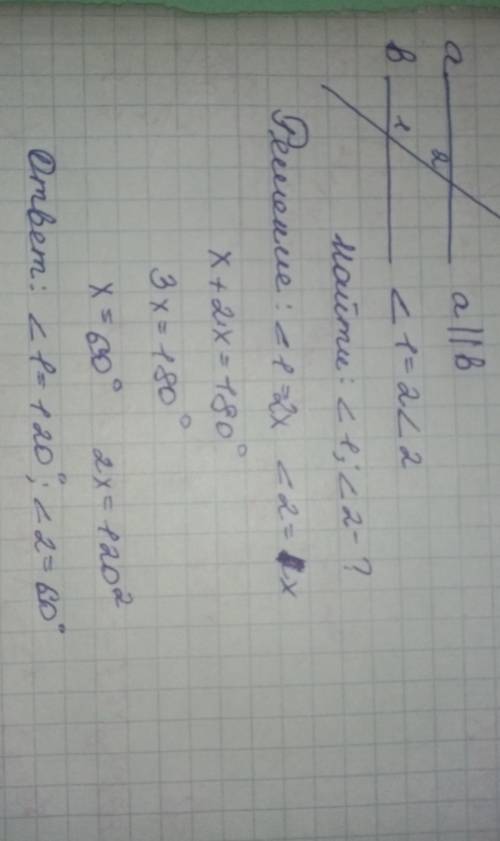 a 2 a || b
b 1 < 1 = 2 < 2
Найти: < 1; < 2 - ?
Решение: < 1 = 2x < 2 = x
x + 2x = 180°
3x = 180°
x = 60° 2x = 120²
Ответ: < 1 = 120°; < 2 = 60°